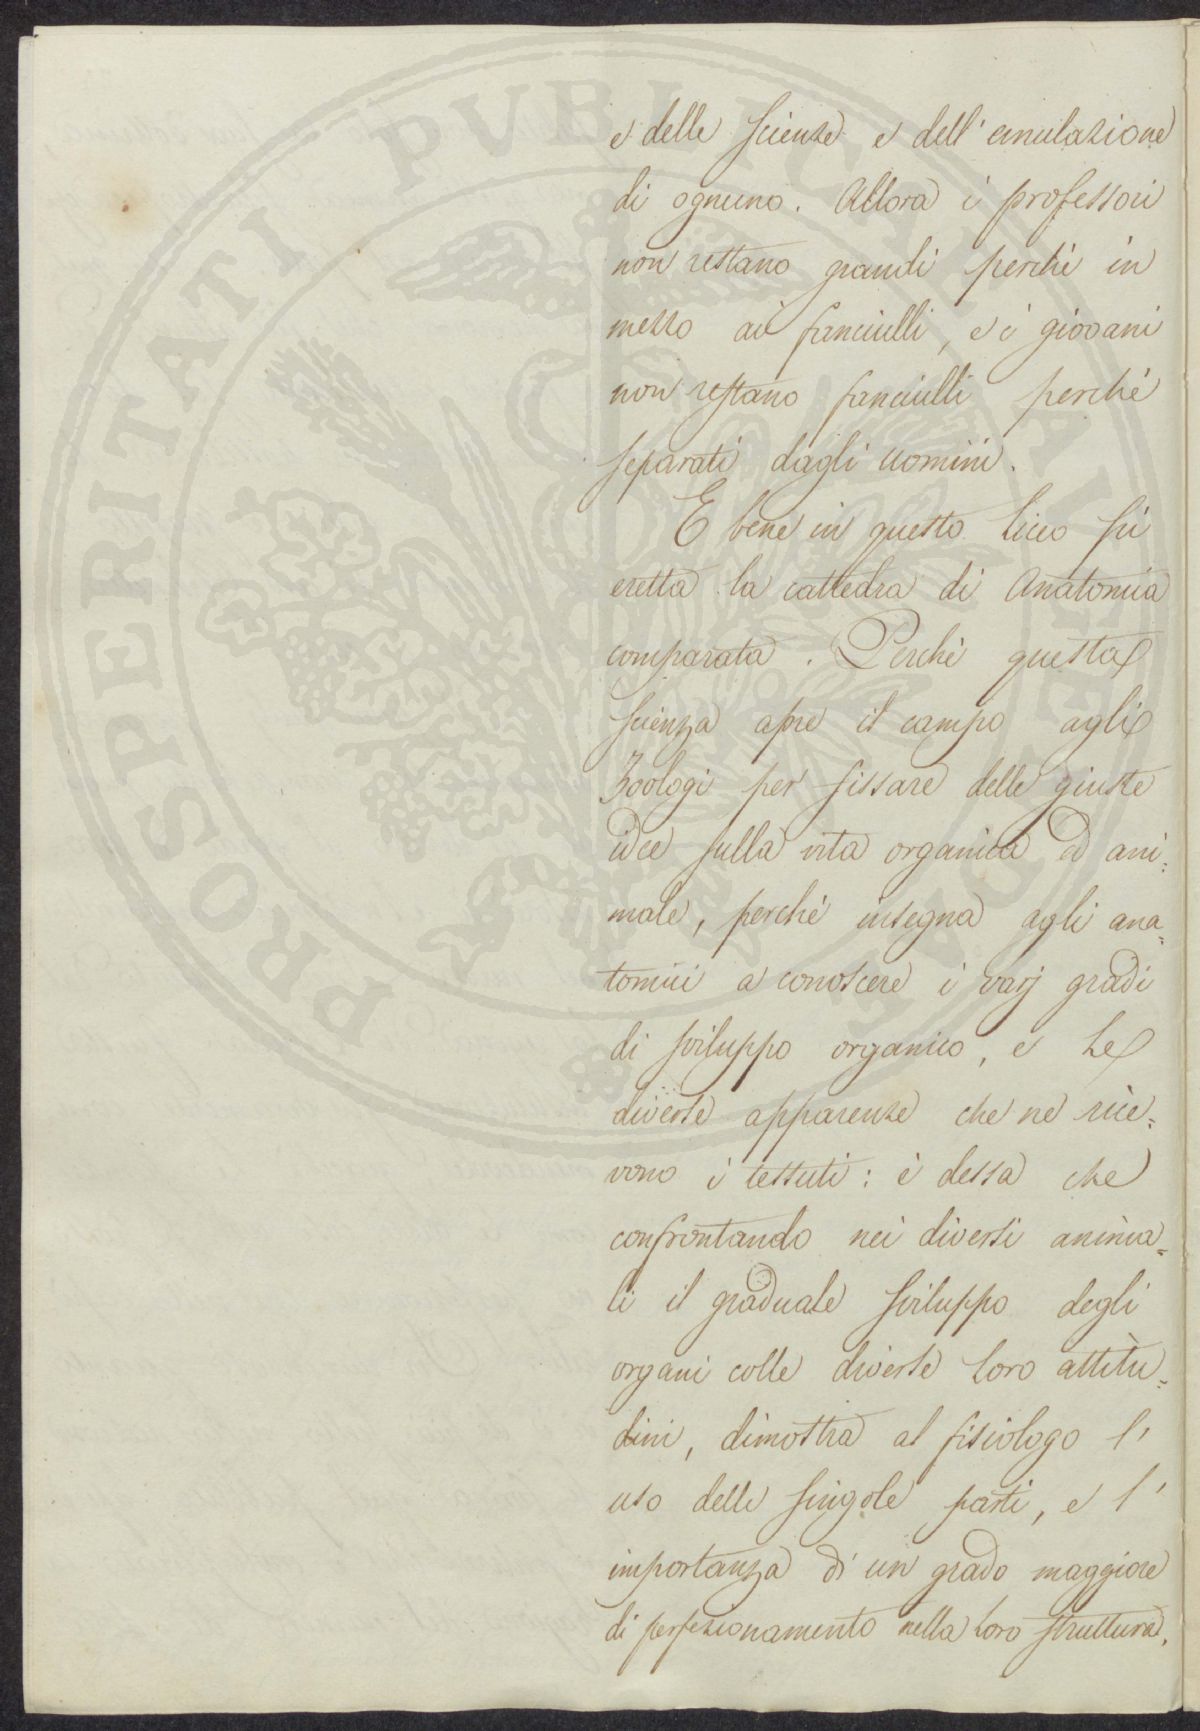 e delle scienze e dell'emulazione
di ognuno. Allora i professori
non restano grandi perchè in
mezzo ai fanciulli, e i giovani
non restano fanciulli perchè
separati dagli uomini.
E bene in questo Liceo fù
eretta la cattedra di Anatomia
comparata. Perchè questa
scienza apre il campo agli
Zoologi per fissare delle giuste
idee sulla vita organica ed ani=
male, perchè insegna agli ana=
tomici a conoscere i varj gradi
di sviluppo organico, e le
diverse apparenze che ne rice=
vono i tessuti: è dessa che
confrontando nei diversi anima=
li il graduale sviluppo degli
organi colle diverse loro attitu=
dini, dimostra al fisiologo l'
uso delle singole parti, e l'
importanza di un grado maggiore
di perfezionamento nella loro struttura.
PROSPERITATI PVBLICAE AVGENDAE